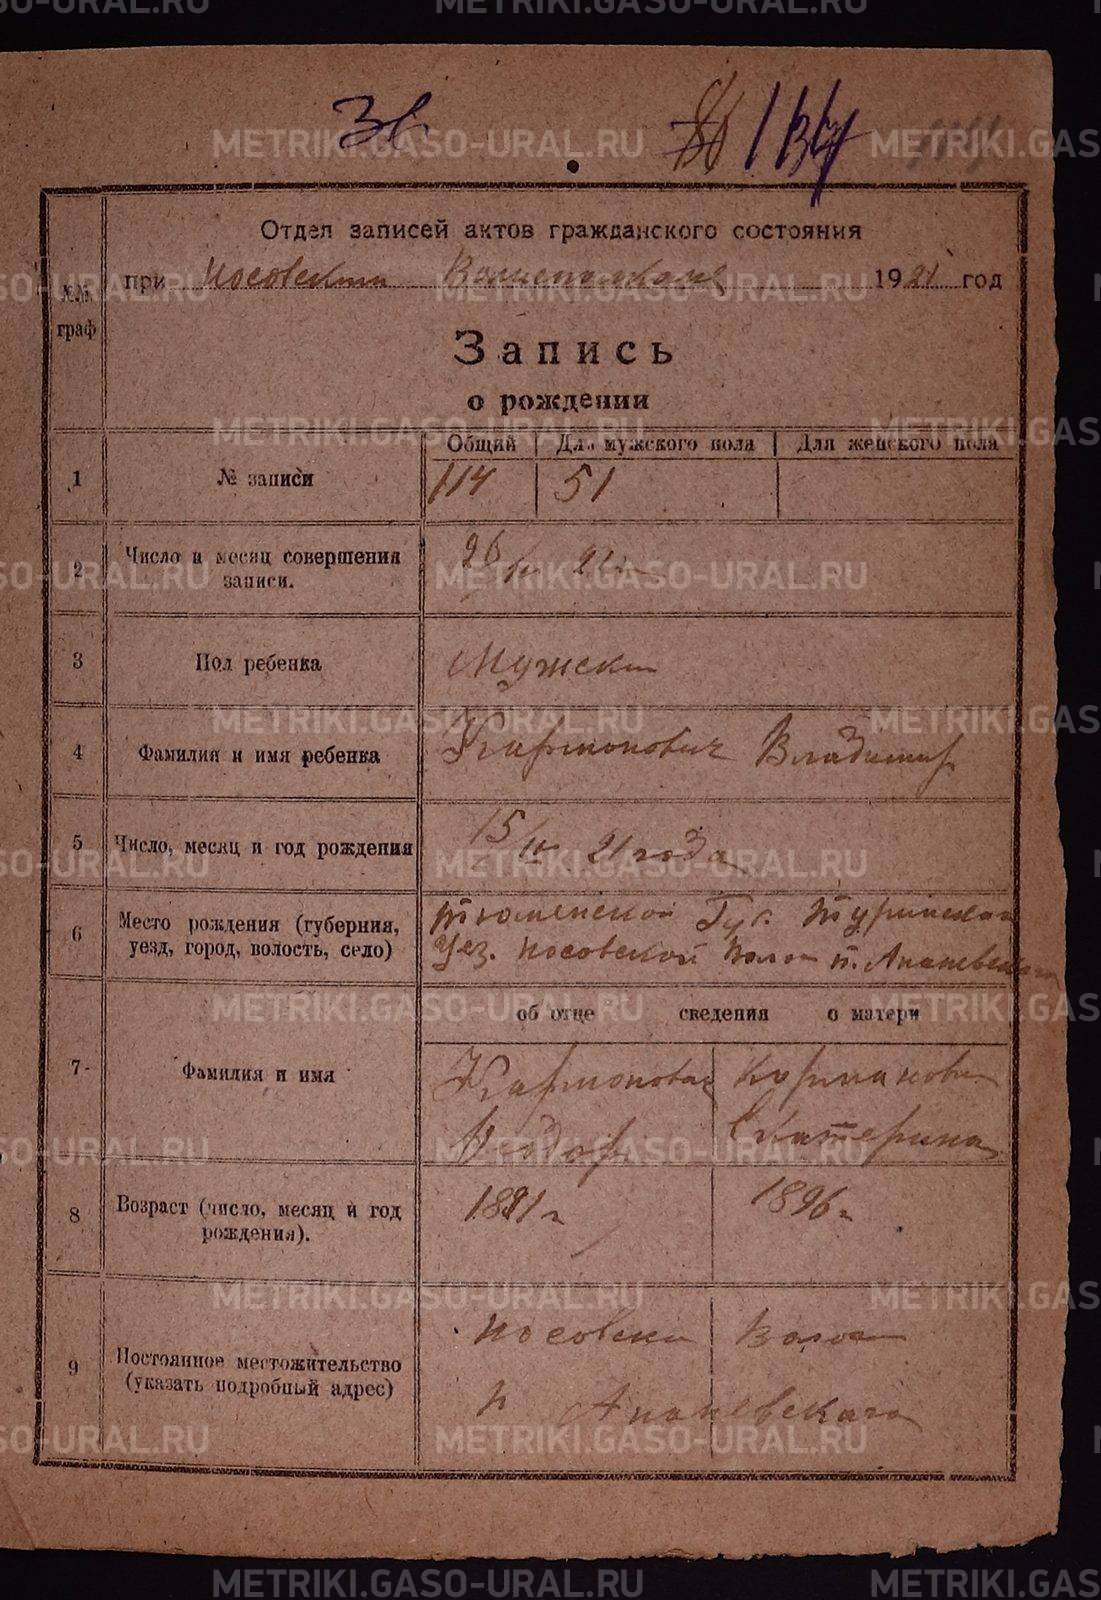 Зв
Отдел записей актов гражданского состояния
№№ граф
при Носовским Волисполкоме 1921 год
Запись
о рождении
Общий Для мужского пола Для женского пола
1 № записи 114 51
2 Число и месяц совершения
записи.
26/IV 21 г.
3 Пол ребенка Мужски
4 Фамилия и имя ребенка Кармонович Владимир
5 Число, месяц и год рождения 15/IV 21 года
6 Место рождения (губерния,
уезд, город, волость, село)
Тюменской Губ. Туринская
Уез. Носовской Волос п.
об отце сведения о матери
7 Фамилия и имя
Кармонович
Федор
Кармонович
Екатерина
8 Возраст (число, месяц и год
рождения).
1896 г.
9 Постоянное местожительство
(указать подробный адрес)
Носовски Волос
п
METRIKI.GASO-URAL.RU